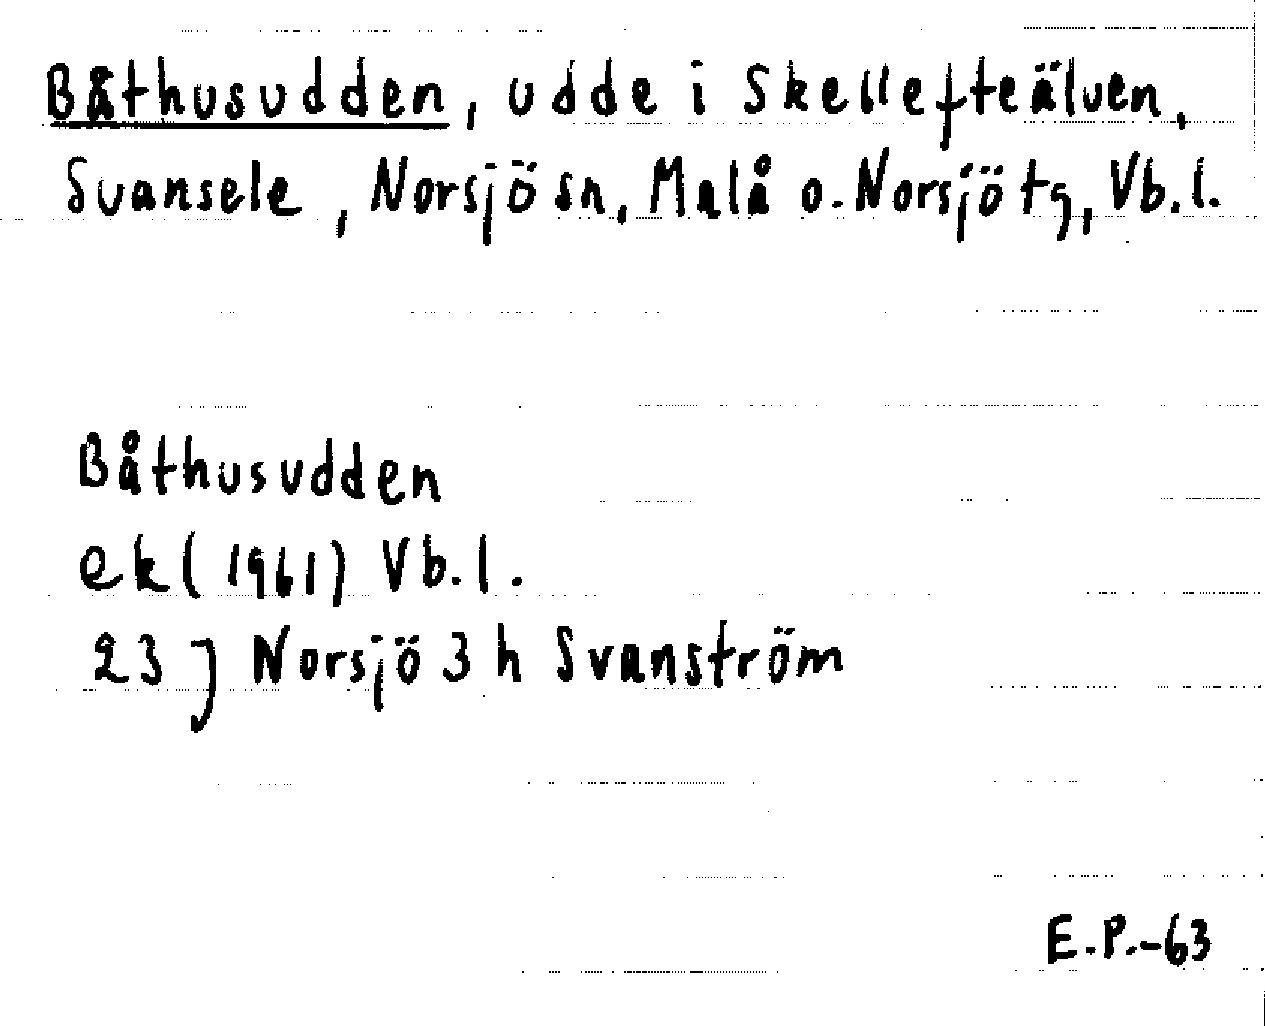 Båthusudden, udde i Skellefteälven,
Svansele, Norsjö sn, Malå o. Norsjö tg, Vb. l.
Båthusudden
ek (1961) Vb. l.
23 J Norsjö 3 h Svanström
E.P.-63